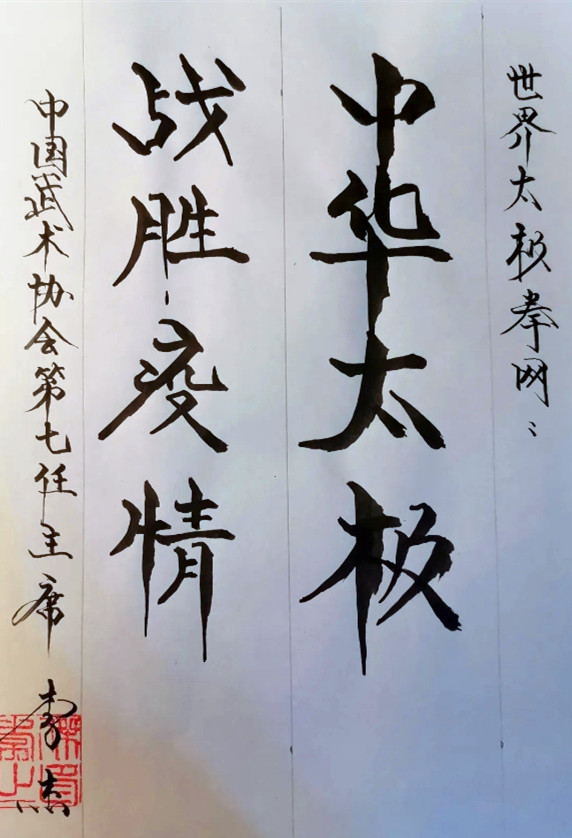 世界太极拳网：
中华太极
战胜疫情
中国武术协会第七任主席 李杰